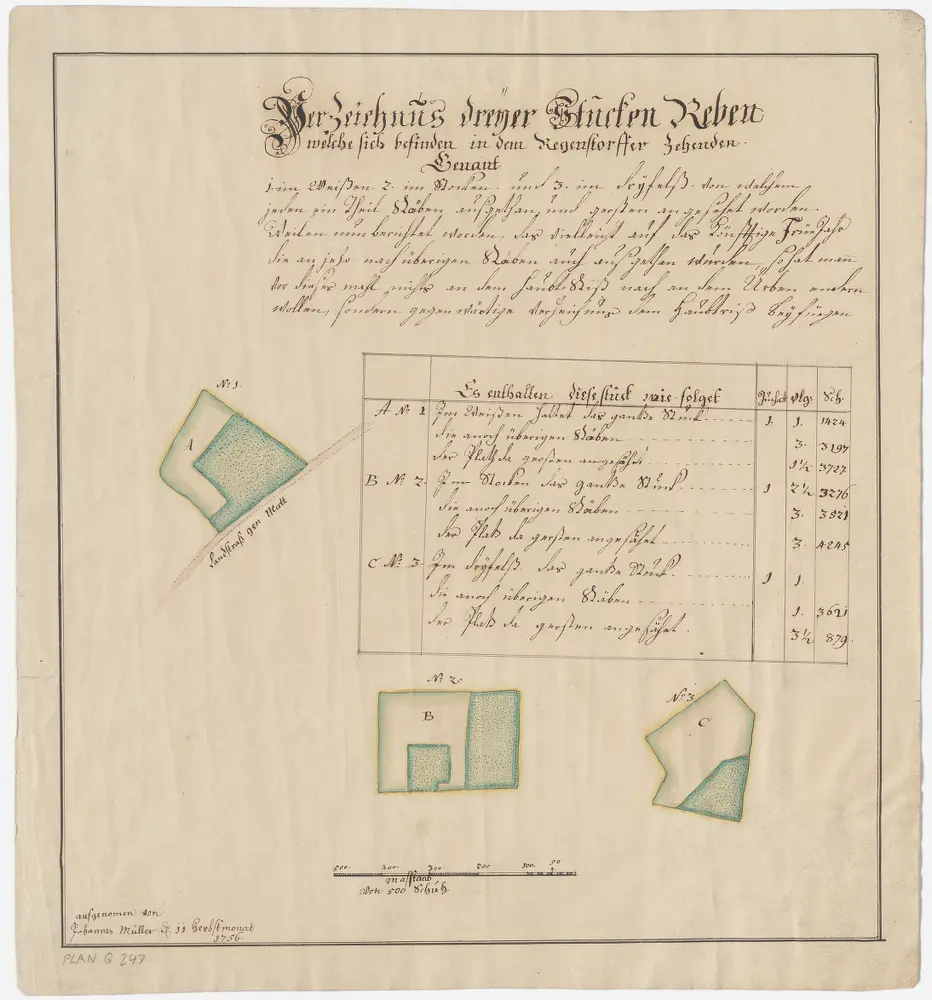 Verzeichnus dreyer Stucken Reben
welche sich befinden in dem Regenstorffer Zehenden.
Genant
1. im Weißen. 2. im Stocken. und 3. im Dryfelß. von welchem
jeden ein Theil Räben ausgethan, und gersten angesehet worden.
Weilen nun berichtet worden, das vielleicht auf das Könfftige Früe Jahr
die an jezo nach überigen Räben auch aus gethan wurden, so hat man
vor dieser mahl nichts an dem haubt Riß nach an dem Urben endern
wollen, sondern gegenwärtige Verzeichnus dem Haubtriß beyfüegen
Es enthalten diese stuck wie folget Juchart vlg. Sch.
A No 1. Im Weißen haltet das gantze Stuck 1. 1. 1424
die anoch überigen Räben 3. 3197
der Platz da gersten angesähet 1½ 3727
B No 2. Im Stocken das gantze Stuck 1 2½ 3276
die anoch überigen Räben 3. 3521
der Platz da gersten angesähet 3. 4245
C No 3. Im Dryfelß. das gantze Stuck. 1 1.
die anoch überigen Räben 1. 3621
der Platz da gersten angesähet. 3½ 879.
No 1.
A
Landstraß gen Matt
No 2.
B
No 3
C
500. 400. 300. 200. 100. 50
Masstaab
Von 500 Schuh
aufgenomen von
Johannes Müller 11 Herbstmonat
1756.
PLAN Q 247